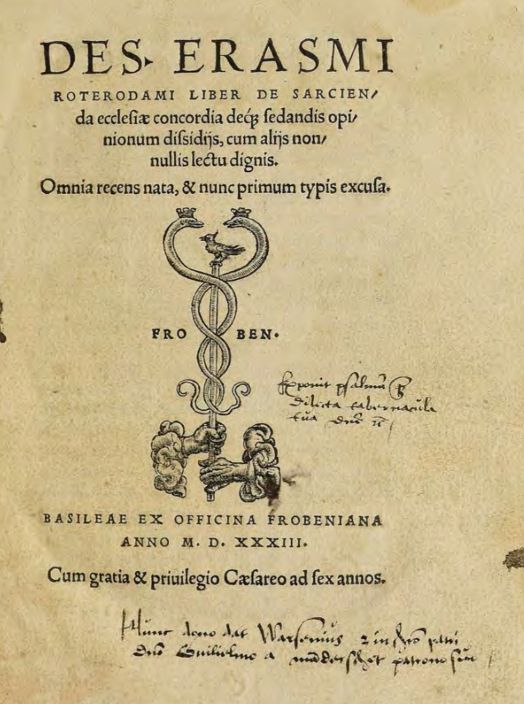 DES· ERASMI
ROTERODAMI LIBER DE SARCIEN/
da ecclesiæ concordia deq́ꝫ sedandis opi/
nionum dissidijs, cum alijs non/
nullis lectu dignis.
Omnia recens nata, & nunc primum typis excusa.
FRO BEN·
Exponit psalmū
dilecta tabernacula
tua
BASILEAE EX OFFICINA FROBENIANA
ANNO M. D. XXXIII.
Cum gratia & priuilegio Cæsareo ad sex annos.
Hunc dono dat patri
Guilielmo a patrono suo